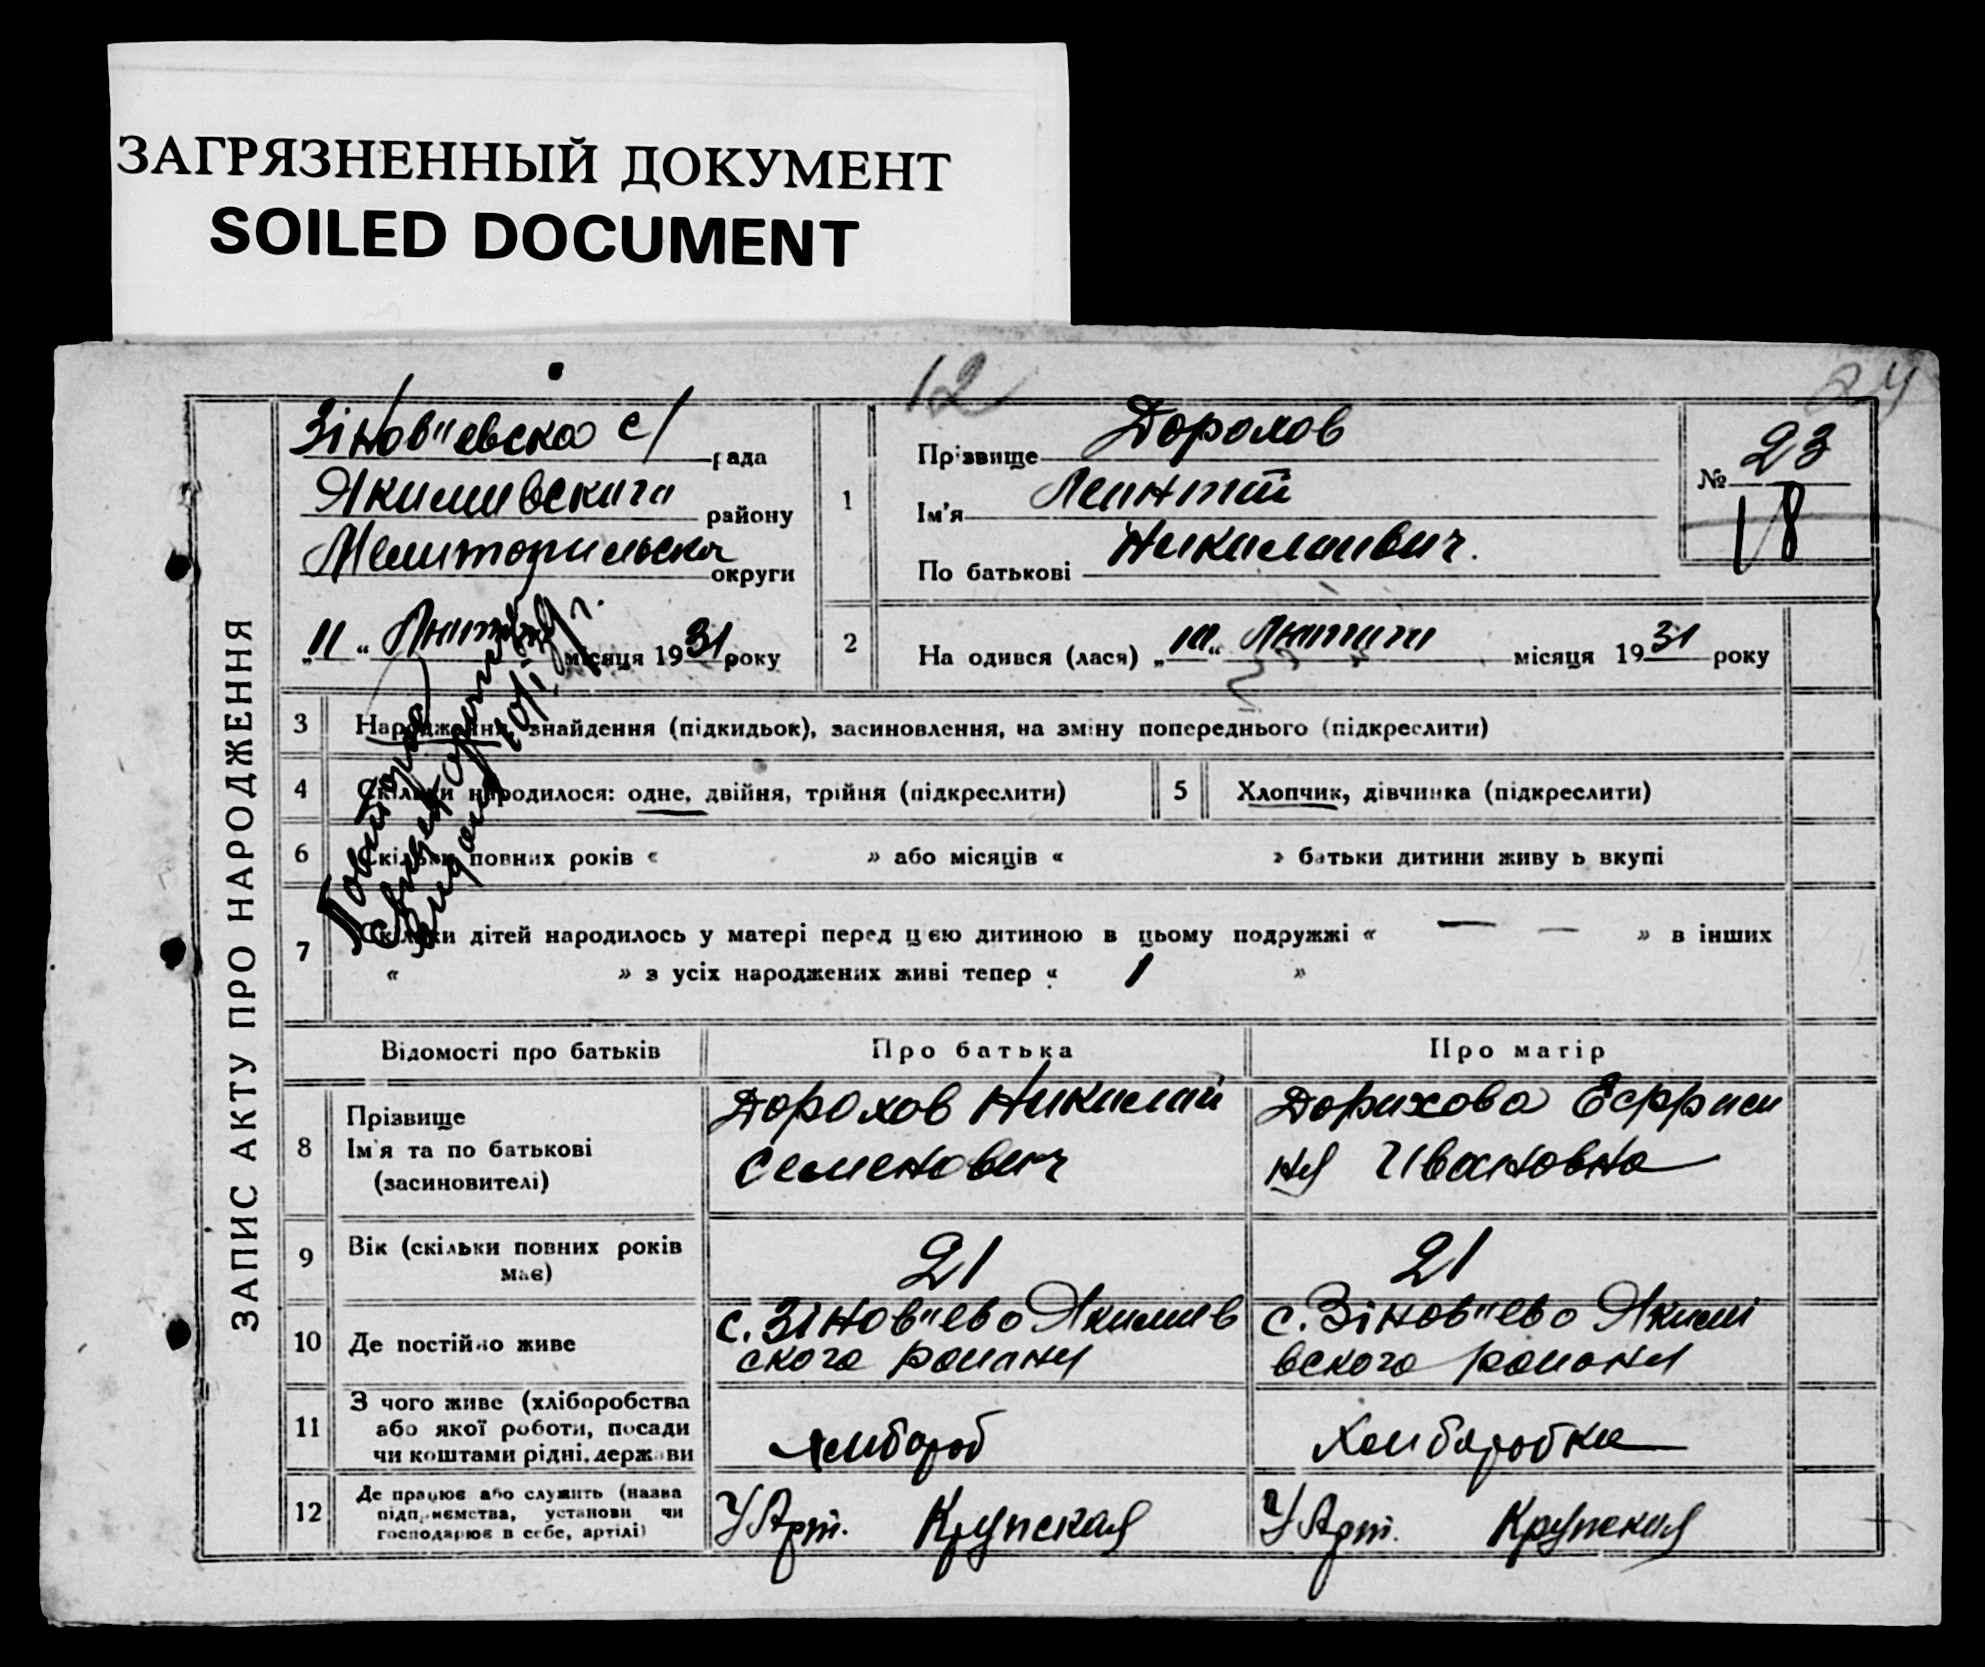 ЗАГРЯЗНЕННЫЙ ДОКУМЕНТ
SOILED DOCUMENT
12
24
ЗАПИС АКТУ ПРО НАРОДЖЕННЯ
Зіновʼʼевска с/ рада
Якимивского району
Мелитопильскои округи
„11“ Лютого місяця 1931 року
1
Прізвище Дорохов
Ім'я Леонтій
По батькові Николаович.
№ 23
18
2
На одився (лася) „10“ Лютого місяця 1931 року
Повторне
Свидоцтво
видано
3 Народження, знайдення (підкидьок), засиновлення, на зміну попереднього (підкреслити)
4 Скільки народилося: одне, двійня, трійня (підкреслити)
5 Хлопчик, дівчинка (підкреслити)
6 Скільки повних років « » або місяців « » батьки дитини живу ь вкупі
7 Скільки дітей народилось у матері перед цією дитиною в цьому подружжі « — — » в інших
« » з усіх народжених живі тепер « 1 »
Відомості про батьків Про батька Про матір
8 Прізвище
Ім'я та по батькові
(засиновителі)
Дорохов Николай
Семенович
Дорохова Ефроси
ня Ивановна
9 Вік (скільки повних років
має)
21
21
10 Де постійно живе
с. Зіновʼʼево Якимив
ского району
с. Зіновʼʼево Якими
вского району
11 З чого живе (хліборобства
або якої роботи, посади
чи коштами рідні, держави
хлибороб
Хлиборобка
12 Де працює або служить (назва
підприємства, установи чи
господарює в себе, артілі)
У Арт. Крупская
У Арт. Крупская